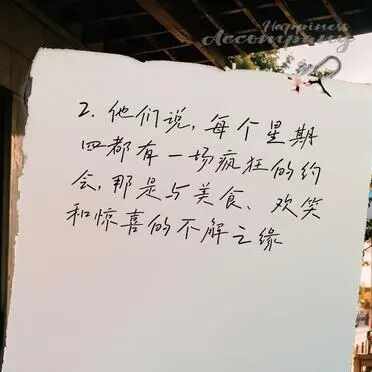 Happiness
Accompany
2. 他们说,每个星期
四都有一场疯狂的约
会,那是与美食、欢笑
和惊喜的不解之缘